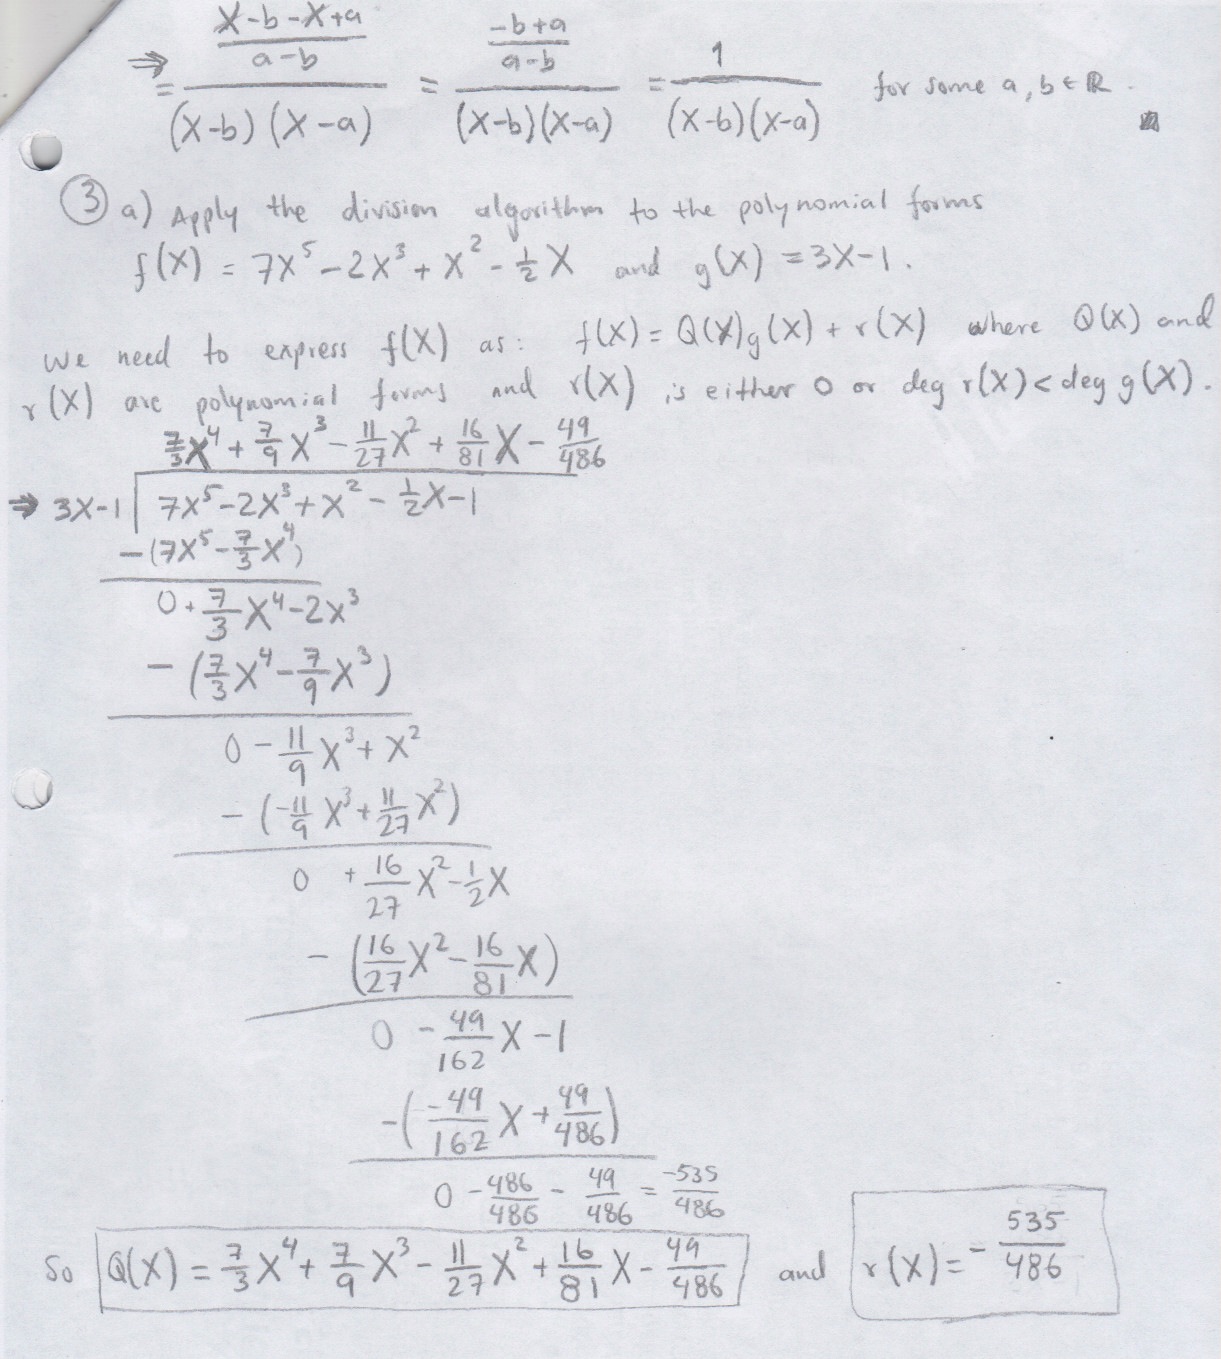 ⇒ = ((X-b-X+a)/(a-b))/((X-b)(X-a)) = ((-b+a)/(a-b))/((X-b)(X-a)) = 1/((X-b)(X-a)) for some a, b ∈ ℝ.
③ a) Apply the division algorithm to the polynomial forms
f(X) = 7X⁵ - 2X³ + X² - 1/2 X and g(X) = 3X-1.
We need to express f(X) as: f(X) = Q(X)g(X) + r(X) where Q(X) and
r(X) are polynomial forms and r(X) is either 0 or deg r(X) < deg g(X).
7/3 X⁴ + 7/9 X³ - 11/27 X² + 16/81 X - 49/486
⇒ 3X-1 | 7X⁵ - 2X³ + X² - 1/2 X - 1
-(7X⁵ - 7/3 X⁴)
0 + 7/3 X⁴ - 2X³
- (7/3 X⁴ - 7/9 X³)
0 - 11/9 X³ + X²
- (-11/9 X³ + 11/27 X²)
0 + 16/27 X² - 1/2 X
- (16/27 X² - 16/81 X)
0 - 49/162 X - 1
-(-49/162 X + 49/486)
0 - 486/486 - 49/486 = -535/486
So Q(X) = 7/3 X⁴ + 7/9 X³ - 11/27 X² + 16/81 X - 49/486 and r(X) = - 535/486